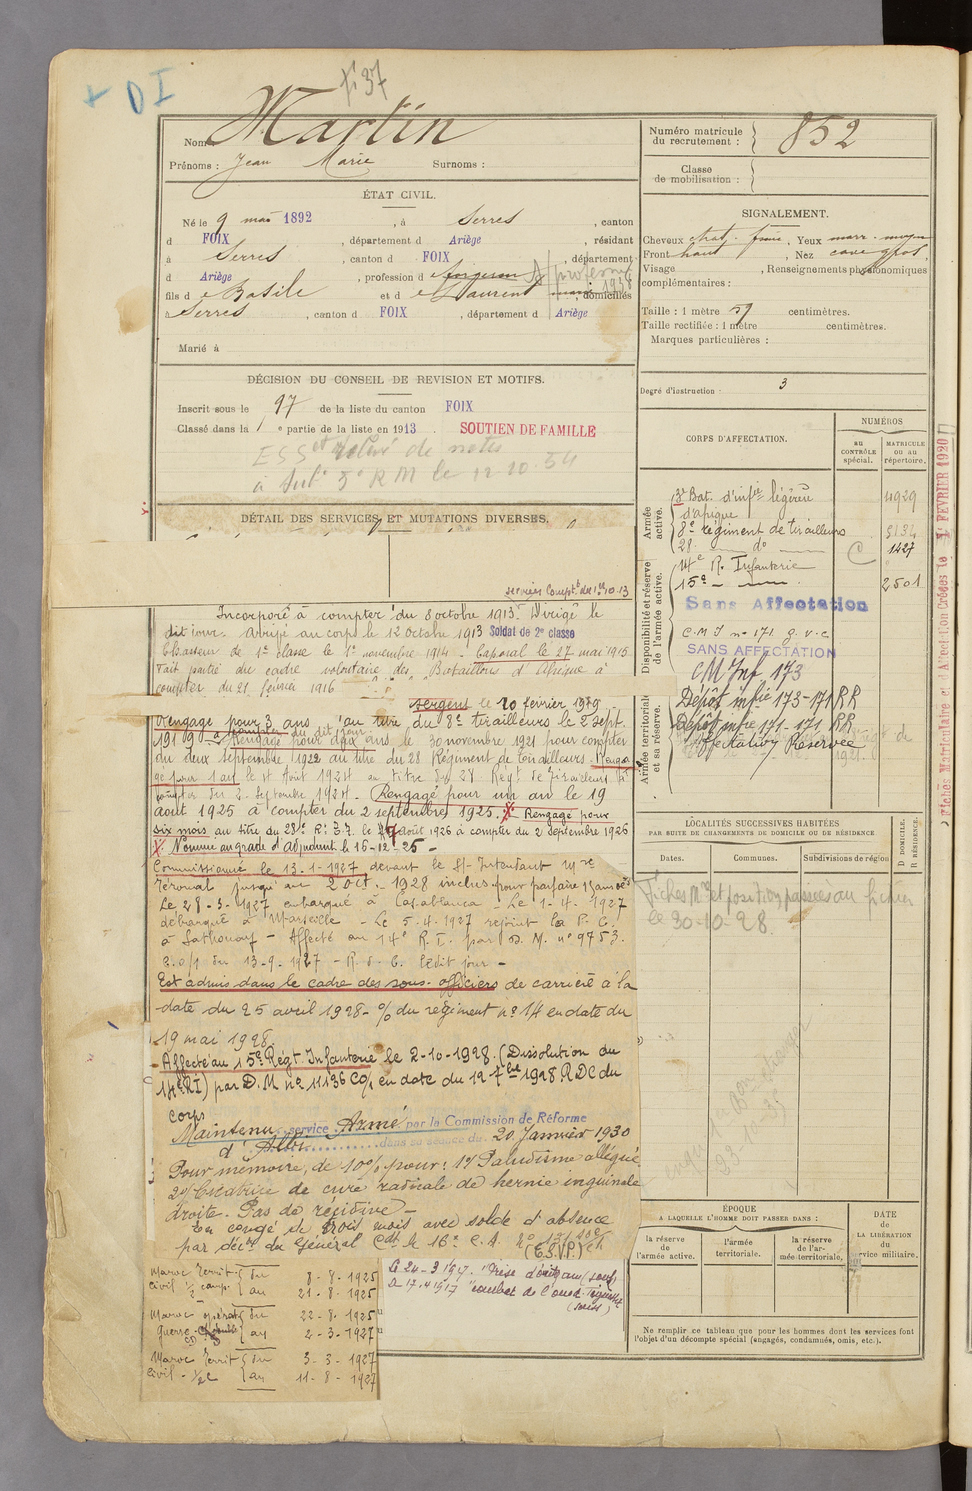 + DI
f. 37
Nom Martin
Prénoms : Jean Marie Surnoms :
Numéro matricule du recrutement : 852
Classe de mobilisation :
ÉTAT CIVIL.
Né le 9 mai 1892, à Serres, canton
d FOIX, département d Ariège, résidant
à Serres, canton d FOIX, département
d Ariège, profession d e forgeron
1938
fils d e Basile et d e Laurent, domiciliés
à Serres, canton d FOIX, département d Ariège
Marié à
SIGNALEMENT.
Cheveux chat. foncé, Yeux marr. moyen
Front haut, Nez cave gros,
Visage , Renseignements physionomiques
complémentaires :
Taille : 1 mètre 59 centimètres.
Taille rectifiée : 1 mètre centimètres.
Marques particulières :
Degré d'instruction : 3
DÉCISION DU CONSEIL DE REVISION ET MOTIFS.
Inscrit sous le 97 de la liste du canton FOIX
Classé dans la 1e partie de la liste en 1913. SOUTIEN DE FAMILLE
ESS et relevé de notes
à 5e RM le 12-10-34
DÉTAIL DES SERVICES ET MUTATIONS DIVERSES.
services Compt.t du 1er 10-13
Incorporé à compter du 8 octobre 1913. Dirigé le
dit jour. Arrivé au corps le 12 octobre 1913 Soldat de 2e classe
Chasseur de 1e classe le 1er novembre 1914 - Caporal le 27 mai 1915
Fait partie du cadre volontaire des Bataillons d'Afrique à
compter du 21 février 1916
Sergent le 20 février 1919
Rengagé pour 3 ans au titre du 8e tirailleurs le 2 sept.
1919 à compter du dit jour
Rengagé pour deux ans le 30 novembre 1921 pour compter
du deux septembre 1922 au titre du 28 Régiment de tirailleurs. Renga
gé pour 1 an le 1er Août 1924 au titre du 28 Régt de Tirailleurs pr
compter du 2 Septembre 1924 - Rengagé pour un an le 19
août 1925 à compter du 2 septembre 1925. X Rengagé pour
six mois au titre du 28e R.T.T. le août 1926 à compter du 2 Septembre 1926
X Nommé au grade d'Adjudant le 16-12-25 -
Commissionné le 13-1-1927 devant le St-Intendant
jusqu'au 2 oct. - 1928 inclus pour parfaire 15 ans de s
Le 28-3-1927 embarqué à Casablanca - Le 1-4-1927
débarqué à Marseille - Le 5-4-1927 rejoint la P.C.
à - Affecté au 14e R.I. par D.M. no 9753.
du 13-9-1927 - R.d.C. ledit jour -
Est admis dans le cadre des sous-officiers de carrière à la
date du 25 avril 1928 - % du régiment no 14 en date du
19 mai 1928.
- Affecté au 15e Régt Infanterie le 2-10-1928. (Dissolution du
14e RI) par D.M. no 11136 en date du 12 7bre 1928 RDC du
corps
Maintenu service Armé par la Commission de Réforme
d' Albi dans sa séance du 20 Janvier 1930
Pour mémoire, de 10% pour : 1o Paludisme allégué
2o Cicatrice de cure radicale de hernie inguinale
droite. Pas de récidive -
En congé de trois mois avec solde d'absence
par décon du Général Cdt le 16e C.A. no 131
(T.S.V.P.)
Maroc Territ. { du 8-8-1925
Civil - ½ camp. { au 21-8-1925
Maroc - opérat { du 22-8-1925
Guerre - { au 2-3-1927
Maroc Territ { du 3-3-1927
Civil - ½ C { au 11-8-1927
Le 24-3-1917.
Le 17-4-1917 "combat de l'oued
CORPS D'AFFECTATION.
NUMÉROS
AU CONTRÔLE spécial.
MATRICULE OU AU répertoire.
Armée active.
3e Bat. d'infie légère d'afrique 4929
8e régiment de tirailleurs
28 - do - C 1427
Disponibilité et réserve de l'armée active.
14e R. Infanterie
15e - - 2501
Sans Affectation
C.M.I no 171 g.v.c
SANS AFFECTATION
CM Inf 173
Armée territoriale et sa réserve.
Dépôt infie 173-171 RR
Dépôt infie 171-171 RR
Affectation Réservée
Fiches Matriculaire et d'Affectation Créées le 1er FEVRIER 1920
LOCALITÉS SUCCESSIVES HABITÉES
PAR SUITE DE CHANGEMENTS DE DOMICILE OU DE RÉSIDENCE.
Dates. Communes. Subdivisions de région
D DOMICILE.
R RÉSIDENCE.
Fiches Mle et position passées au fichier
le 30-10-28.
ÉPOQUE
A LAQUELLE L'HOMME DOIT PASSER DANS :
la réserve de l'armée active.
l'armée territoriale.
la réserve de l'armée territoriale.
DATE de LA LIBÉRATION du service militaire.
Ne remplir ce tableau que pour les hommes dont les services font
l'objet d'un décompte spécial (engagés, condamnés, omis, etc.).